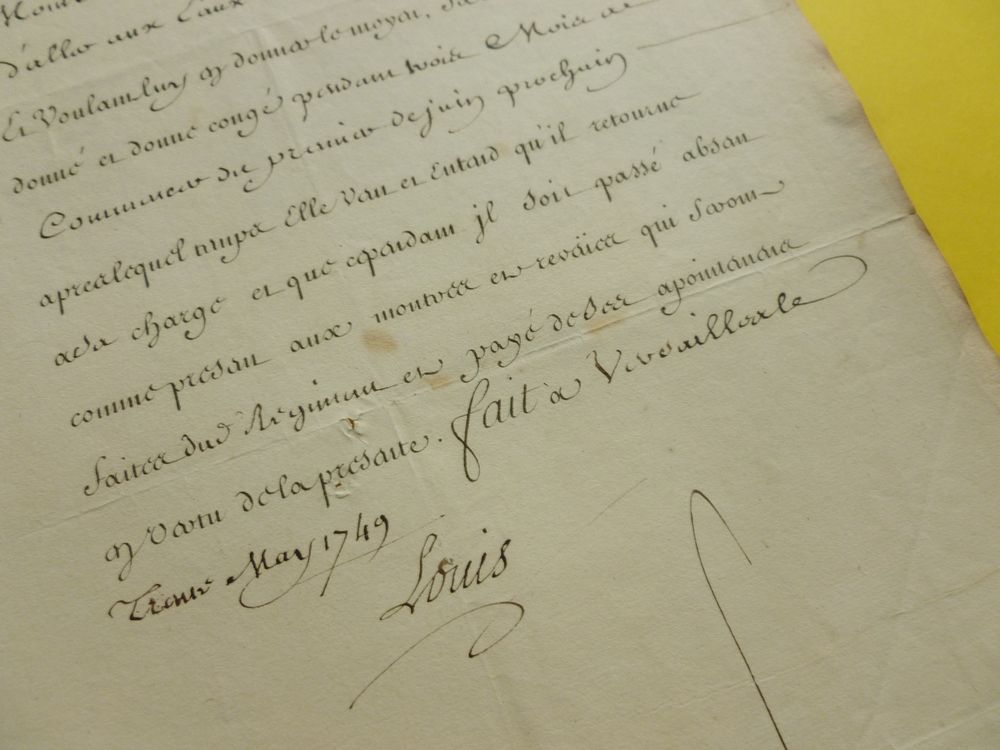 d'aller aux Eaux
Et Voulant luy en donner le moyen, Sa
donné et donne congé pendant trois Mois a
Commencer du premier de juin prochain
apres lequel temps Elle Veut et Entend qu'il retourne
a sa charge et que cependant jl soit passé absent
comme present aux montres et reveües qui seront
faites dud Regiment et payé de ses apointemens
en vertu de la presente. fait a Versailles le
Trente May 1749
Louis